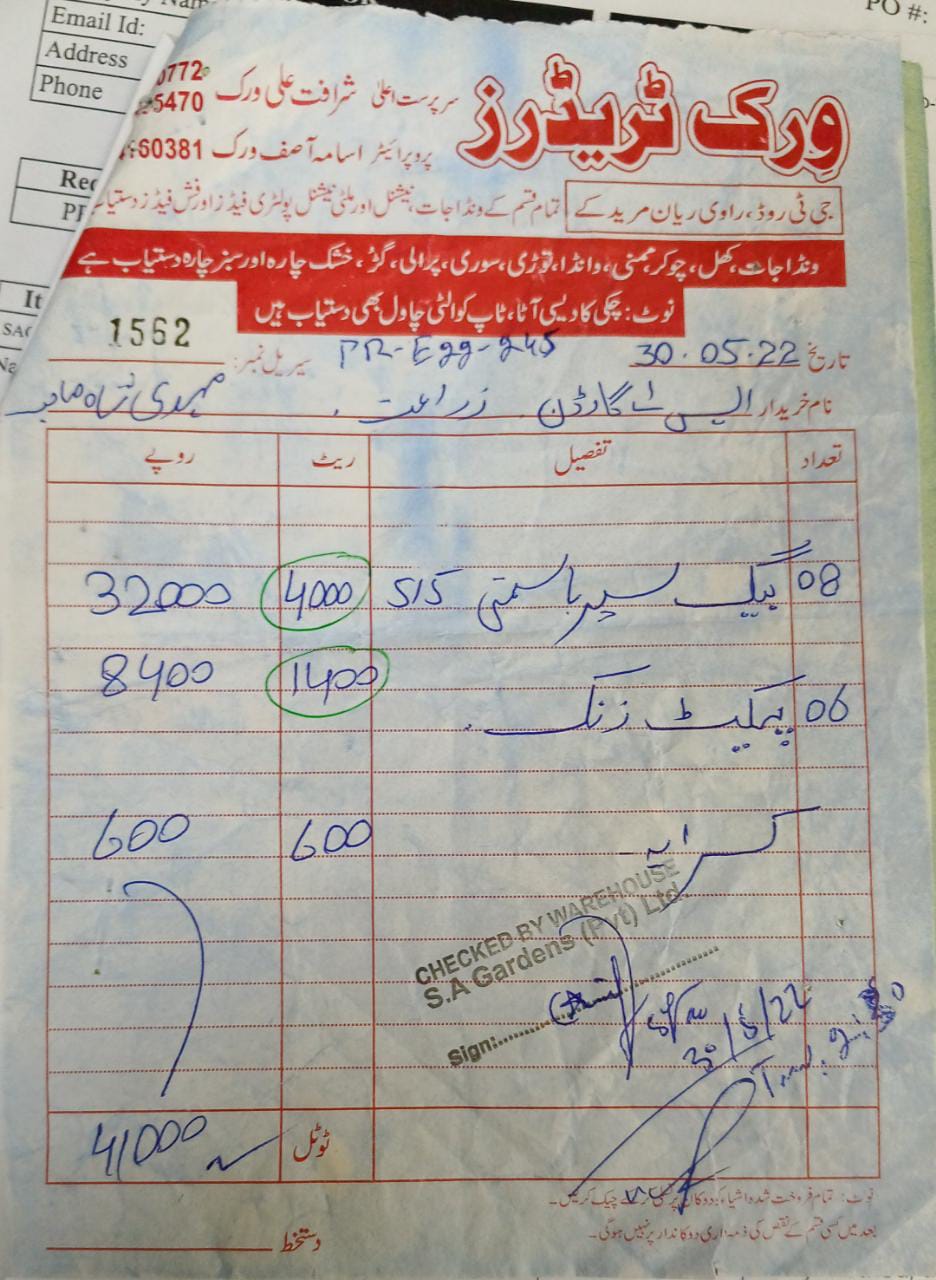 Email Id:
Address
Phone
PO #:
ورک ٹریڈرز
سرپرست اعلیٰ شرافت علی ورک
0772
5470
پروپرائیٹر اسامہ آصف ورک 60381
جی ٹی روڈ، راوی ریان مریدکے
تمام قسم کے ونڈا جات، نیشنل اور ملٹی نیشنل پولٹری فیڈز اور فش فیڈز دستیاب
ونڈا جات، کھل، چوکر، ممنی، وانڈا، توڑی، سوری، پرالی، گڑ، خشک چارہ اور سبز چارہ دستیاب ہے
نوٹ: چکی کا دیسی آٹا، ٹاپ کوالٹی چاول بھی دستیاب ہیں
تاریخ 30.05.22 PR-Egg-245 سیریل نمبر: 1562
نام خریدار ایس اے گارڈن زراعت مہدی شاہ صاحب
تعداد تفصیل ریٹ روپے
08 بیگ سپر باسمتی 515 4000 32000
06 پیکیٹ زنک 1400 8400
کرایہ 600 600
CHECKED BY WAREHOUSE
S.A Gardens (Pvt) Ltd.
Sign:
30/5/22
ٹوٹل 41000
نوٹ: تمام فروخت شدہ اشیاء دوکان پر چیک کریں۔
بعد میں کسی قسم کے نقص کی ذمہ داری دوکاندار پر نہیں ہوگی۔
دستخط